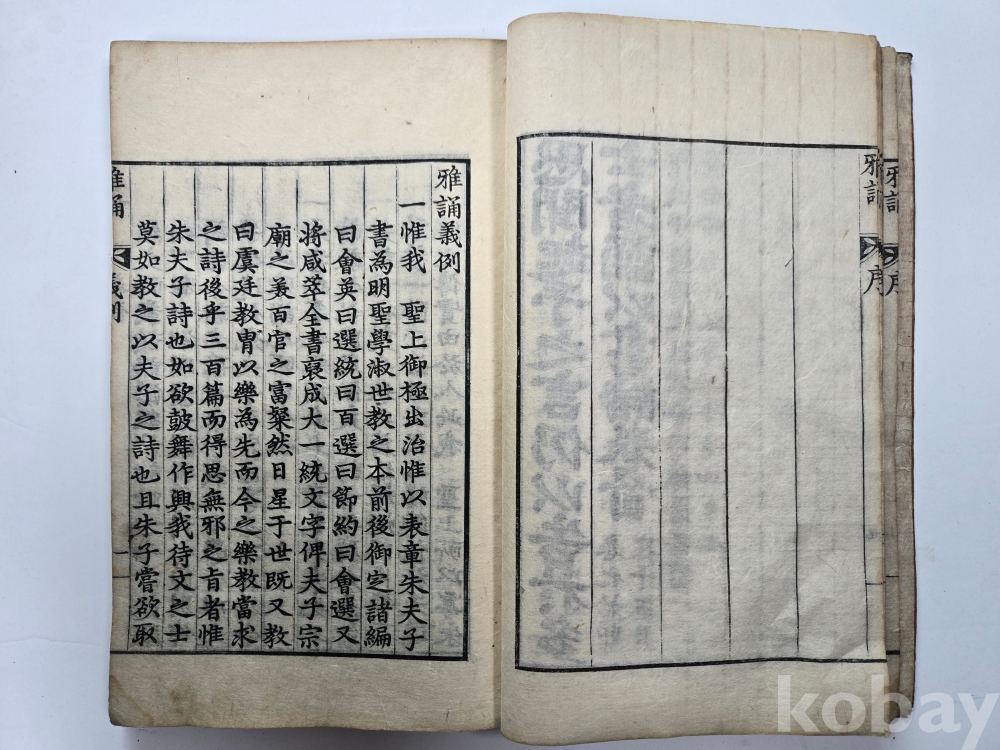 雅誦
序
雅誦義例
一惟我 聖上御極出治惟以表章朱夫子
書為明聖學淑世教之本前後御定諸編
曰會英曰選統曰百選曰節約曰會選又
將咸萃全書裒成大一統文字俾夫子宗
廟之美百官之富粲然日星于世既又教
曰虞廷教胄以樂為先而今之樂教當求
之詩後乎三百篇而得思無邪之旨者惟
朱夫子詩也如欲鼓舞作興我待文之士
莫如教之以夫子之詩也且朱子嘗欲取
雅誦
義例
一
kobay